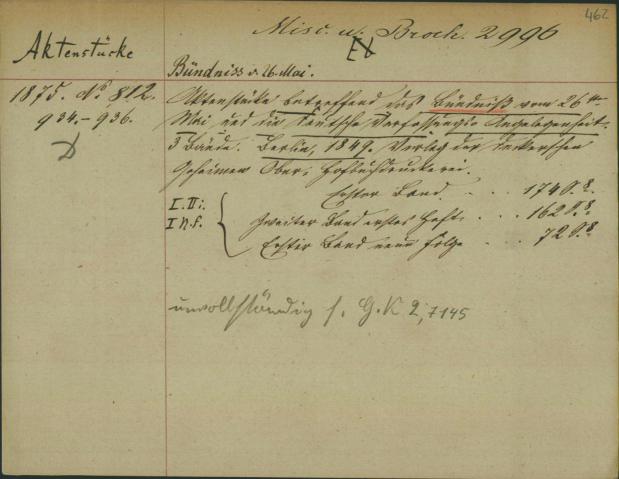 462
Misc. u. Broch. 2996
Aktenstücke
Bündniss v. 26. Mai.
1875. No 812.
934.-936.
Aktenstücke betreffend das Bündniß vom 26ten
Mai und die deutsche Verfassungs-Angelegenheit.
3 Bände. Berlin, 1849. Verlag der Deckerschen
Geheimen Ober-Hofbuchdruckerei.
I. II i. Erster Band . . . 174 S. 8.
I N.f. Zweiter Band erstes Heft . . . 162 S. 8.
Erster Band neue Folge . . . 72 S. 8.
unvollständig s. G.K 2, 7145